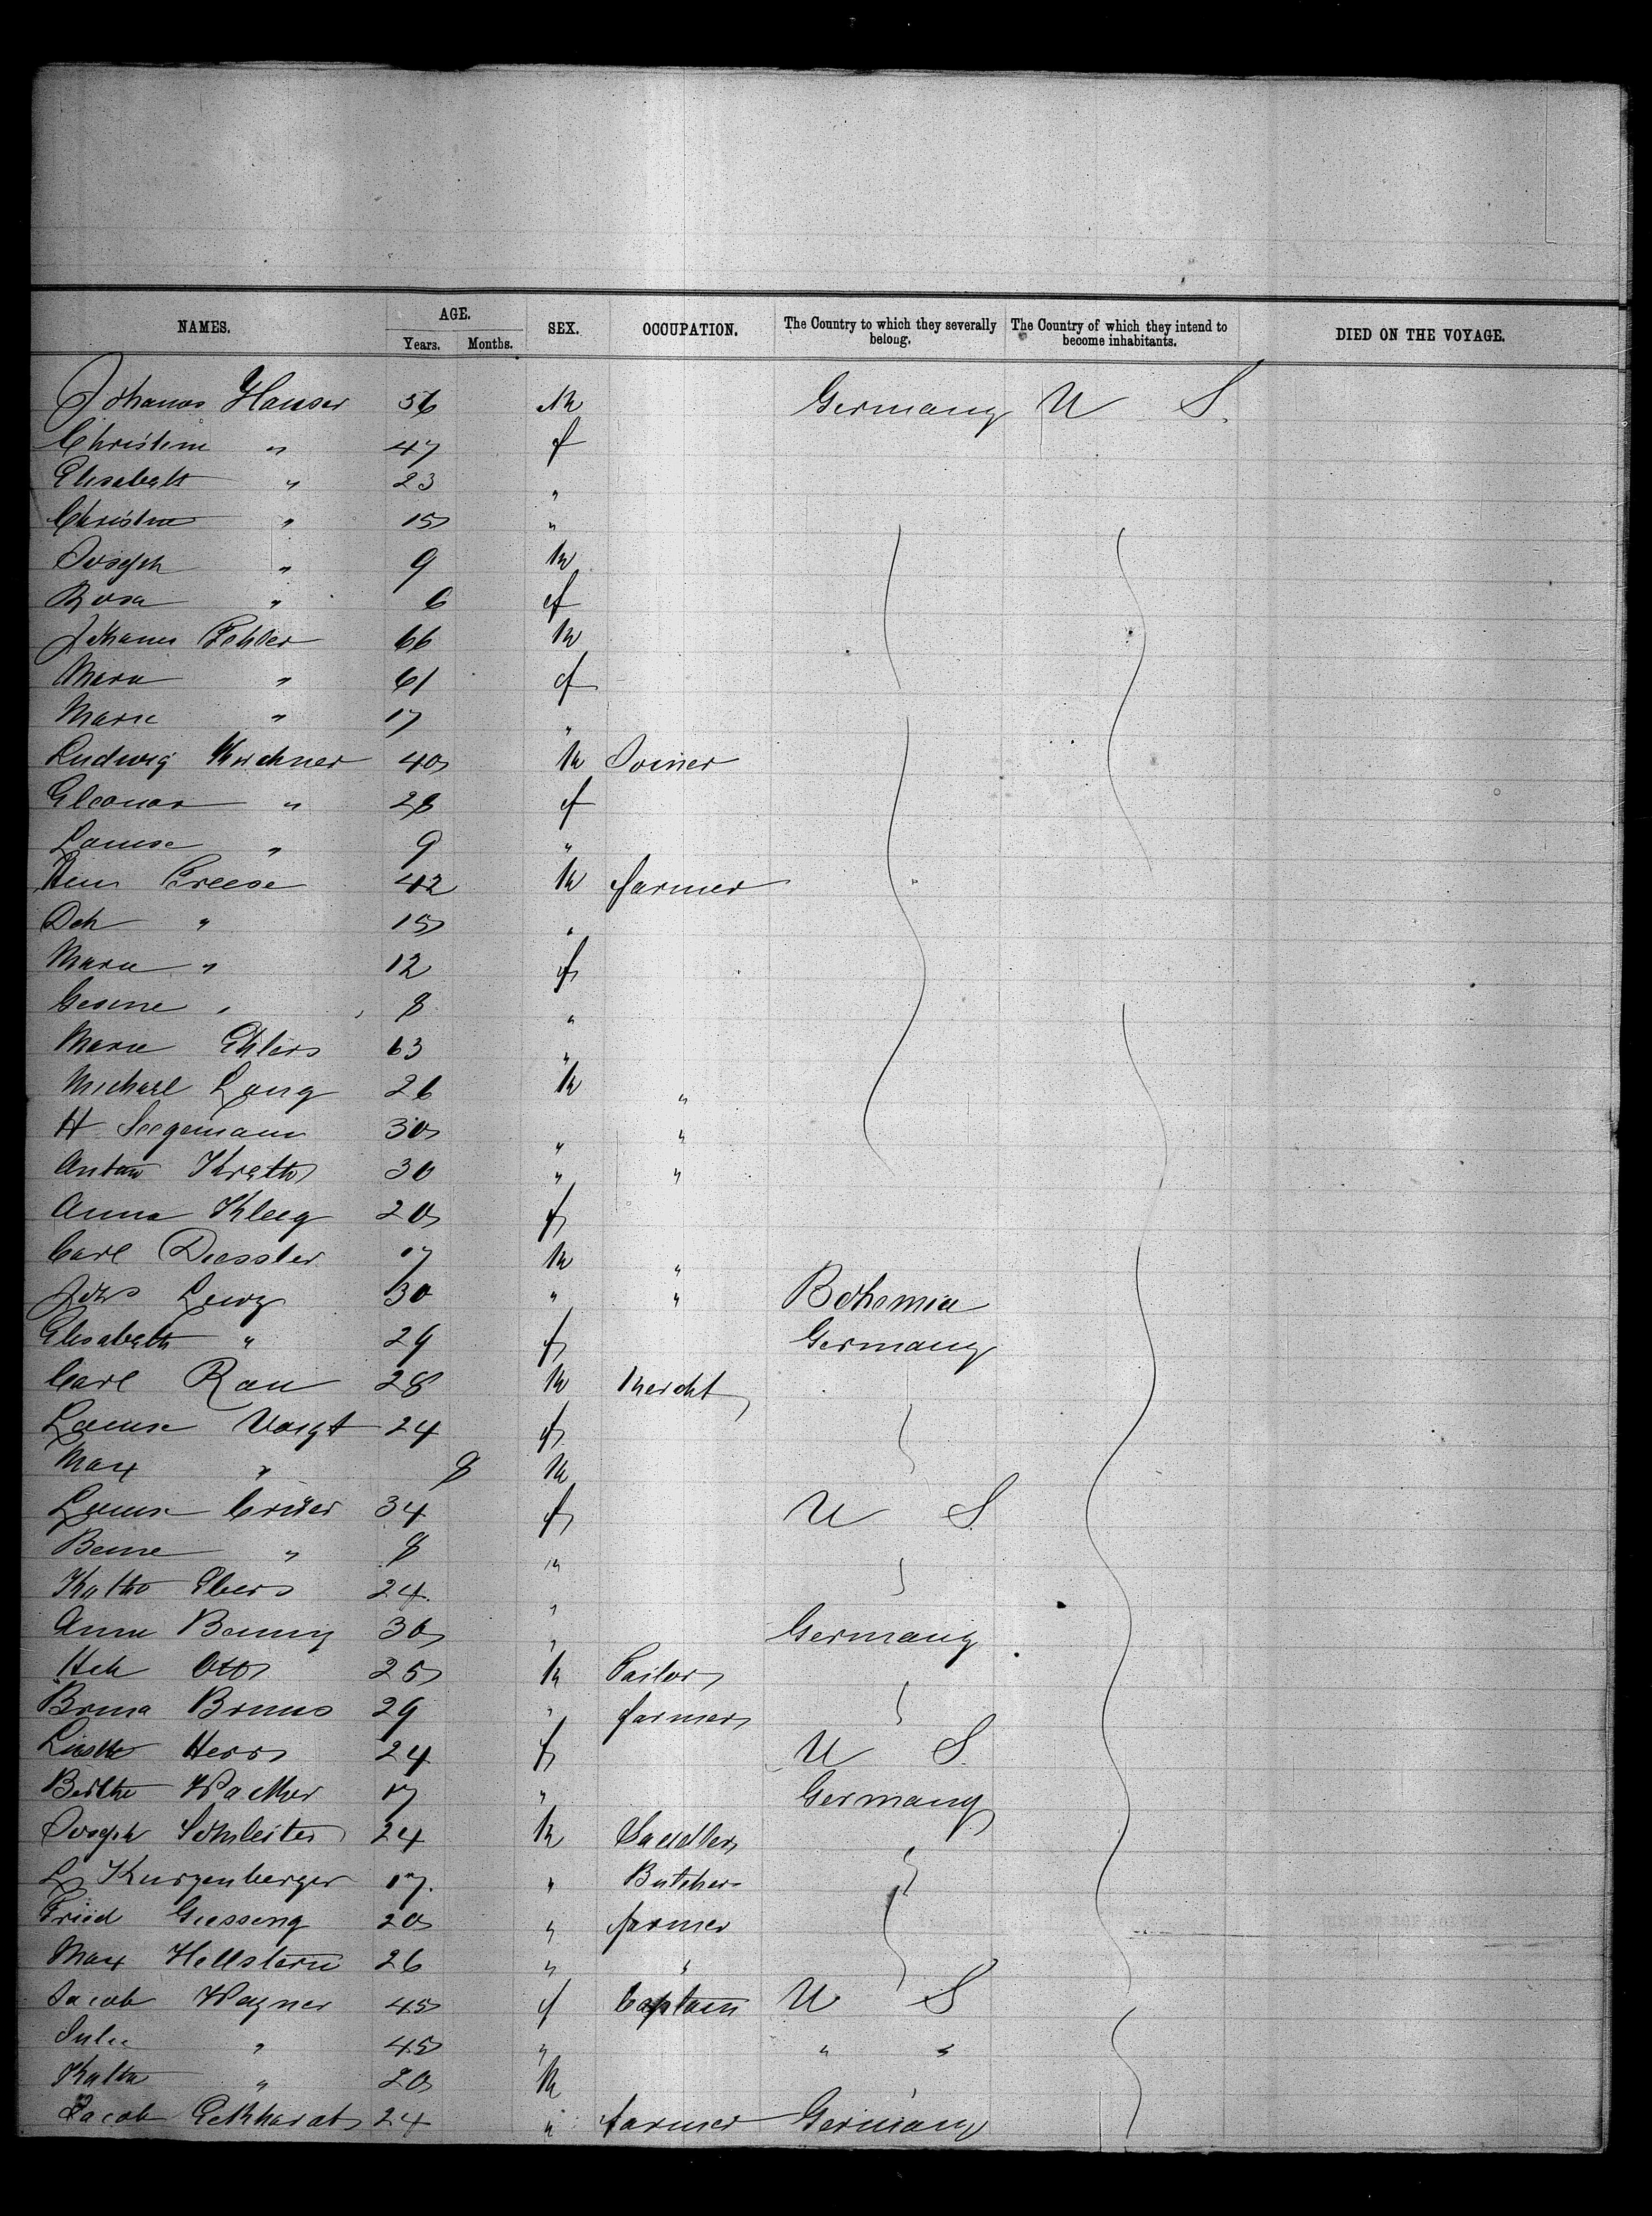 NAMES. AGE. SEX. OCCUPATION. The Country to which they severally belong. The Country of which they intend to become inhabitants. DIED ON THE VOYAGE.
Years. Months.
Johanns Hauser 56 M Germany U S.
Christine " 47 f
Elisabeth " 23 "
Christine " 15 "
Joseph " 9 M
Rosa " 6 f
Johann 66 M
Maria " 61 f
Marie " 17 "
Ludwig Kirchner 40 M Joiner
Eleonor " 28 f
Louise " 9 "
Herm Greese 42 M farmer
Deh " 15 "
Marie " 12 f
Gesine " 8 "
Marie Ehlers 63 "
Michael Lang 26 M "
H Seegemann 30 " "
Anton Krath 30 " "
Anna Kleeg 20 f
Carl Dressler 17 M "
Johs 30 " " Bohemia
Elisabeth " 29 f Germany
Carl Rau 28 M Mercht
Louise Voigt 24 f
Max " 8 M
Louise Crüer 34 f U S.
" 8 "
Kath Ebers 24 "
Anna 30 " Germany
Hch Otto 25 M Tailor
Bruno Bruns 29 " farmer
Herrs 24 f U S.
Berthe Walker 17 " Germany
Joseph Schleiter 24 M Saddler
L Kurzenberger 17. " Butcher
Fried Giesseng 20 " farmer
Max Hellstern 26 " "
Jacob Wagner 45 f Captain U S
Julie " 45 " " "
Kath " 20 M
Jacob Gebhardt 24 " farmer Germany